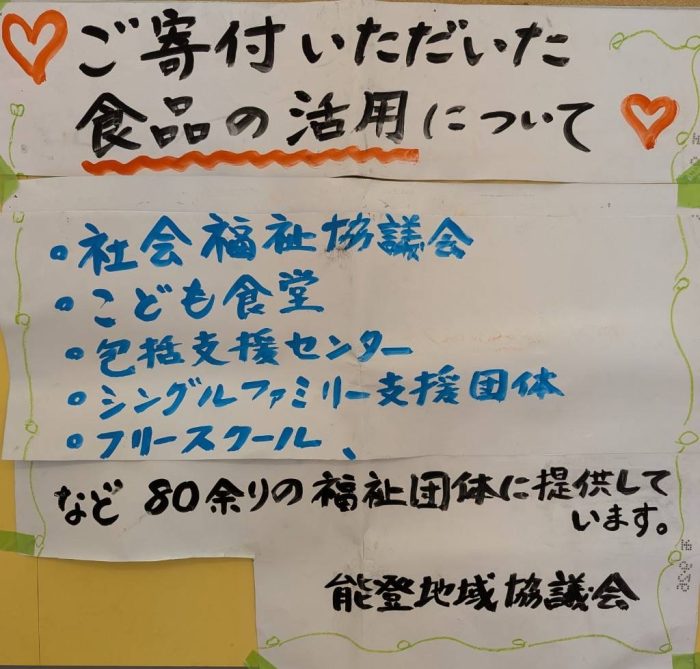 ご寄付いただいた
食品の活用について
・社会福祉協議会
・こども食堂
・包括支援センター
・シングルファミリー支援団体
・フリースクール、
など 80余りの福祉団体に提供して
います。
能登地域協議会